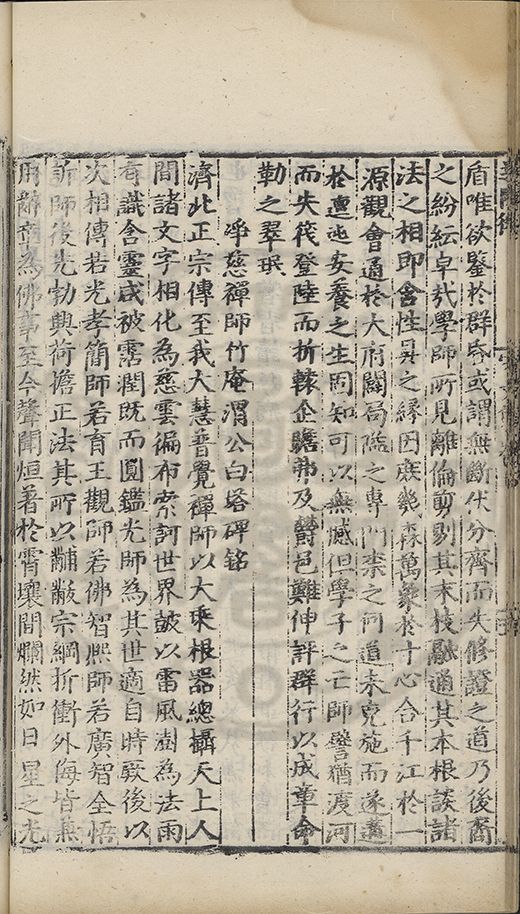 盾唯欲鑒於群昏或謂無斷伏分齊而失修證之道乃後裔
之紛紜卓哉學師所見離倫剪剔其末枝融通其本根談諸
法之相即舍性具之緣因庶幾森萬象於寸心合千江於一
源觀會通於大府闢局隘之專門柰之何道未克施而遂遘
於邅迍安養之生固知可以無憾但學子之亡師譬猶渡河
而失筏登陸而折轅企瞻弗及鬱邑難伸評群行以成章命
勒之翠珉
淨慈禪師竹庵渭公白塔碑銘
濟北正宗傳至我大慧普覺禪師以大乘根器總攝天上人
間諸文字相化為慈雲徧布索訶世界鼓以雷風澍為法雨
有識含靈咸被霑潤既而圓鑑光師為其世適自時厥後以
次相傳若光孝簡師若育王觀師若佛智熈師若廣智全悟
訢師後先勃興荷擔正法其所以黼黻宗綱折衝外侮皆兼
用辭章為佛事至今聲聞烜著於霄壤間爛然如日星之光